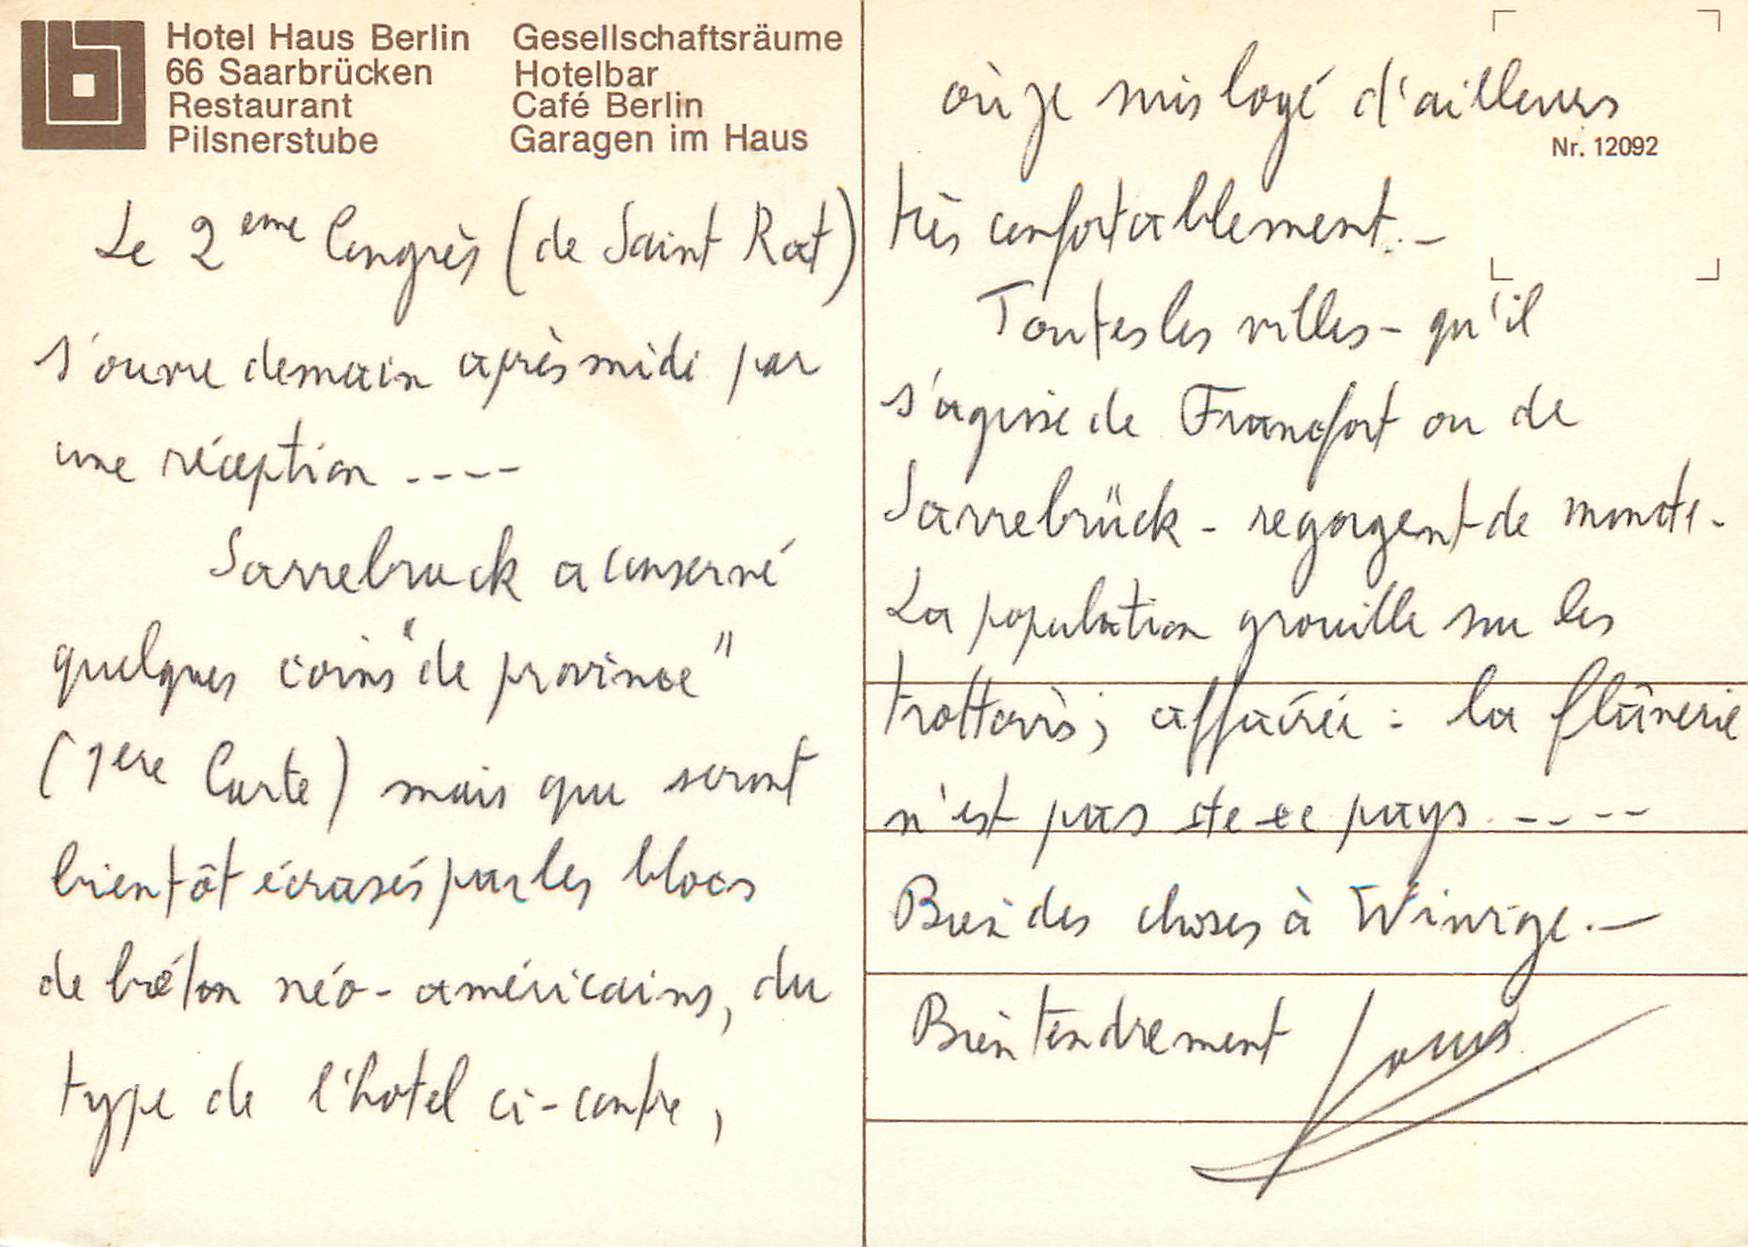 Hotel Haus Berlin
66 Saarbrücken
Restaurant
Pilsnerstube
Gesellschaftsräume
Hotelbar
Café Berlin
Garagen im Haus
Le 2eme Congrès (de Saint Rat)
s'ouvre demain après midi par
une réception ----
Sarrebruck a conservé
quelques coins "de province"
(1ere Carte) mais que seront
bientôt écrasés par les blocs
de béton néo-américains, du
type de l'hotel ci-contre,
où je suis logé d'ailleurs
Nr. 12092
très confortablement.-
Toutes les villes - qu'il
s'agisse de Francfort ou de
Sarrebrück - regorgent de monde.
La population grouille sur les
trottoirs; affairée : la flânerie
n'est pas de ce pays ----
Bien des choses à .-
Bien tendrement